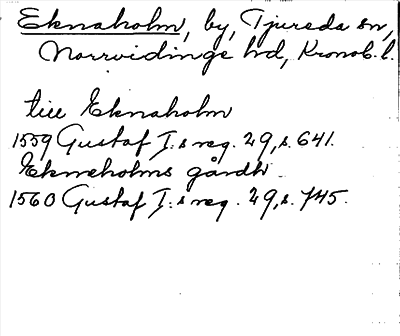 Eknaholm, by, Tjureda sn,
Norrvidinge hd, Kronob. l.
till Eknaholm
1559 Gustaf I:s reg. 29, s. 641.
Ekneholms gårdh
1560 Gustaf I:s reg. 29, s. 745.